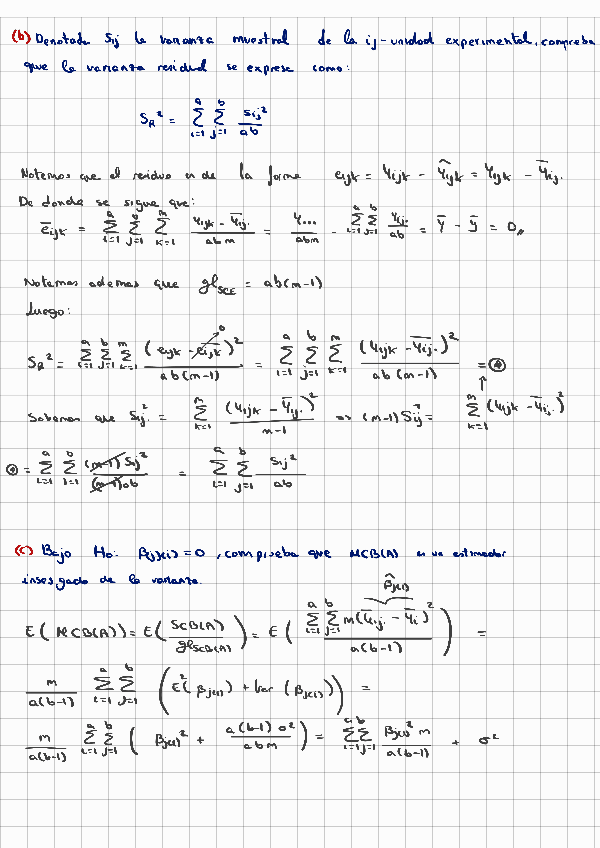 (b) Denotada Sij la varianza muestral de la ij-unidad experimental, comprueba
que la varianza residual se expresa como:
S_R² = Σ_{i=1}^{a} Σ_{j=1}^{b} Sij² / ab
Notemos que el residuo es de la forma e_{ijk} = Y_{ijk} - Ŷ_{ijk} = Y_{ijk} - Ȳ_{ij.}
De donde se sigue que:
ē_{ijk} = Σ_{i=1}^{a} Σ_{j=1}^{b} Σ_{k=1}^{m} (Y_{ijk} - Ȳ_{ij.}) / abm = Y... / abm - Σ_{i=1}^{a} Σ_{j=1}^{b} Y_{ij.} / ab = Ȳ - Ȳ = 0,,
Notemos ademas que gl_{SCE} = ab(m-1)
Luego:
S_R² = Σ_{i=1}^{a} Σ_{j=1}^{b} Σ_{k=1}^{m} (e_{ijk} - ē_{ijk})² / ab(m-1) = Σ_{i=1}^{a} Σ_{j=1}^{b} Σ_{k=1}^{m} (Y_{ijk} - Ȳ_{ij.})² / ab(m-1) = ⊛
Sabemos que S_{ij.}² = Σ_{k=1}^{m} (Y_{ijk} - Ȳ_{ij.})² / m-1 => (m-1) S_{ij}² = Σ_{k=1}^{m} (Y_{ijk} - Ȳ_{ij.})²
⊛ = Σ_{i=1}^{a} Σ_{j=1}^{b} (m-1) S_{ij}² / (m-1) ab = Σ_{i=1}^{a} Σ_{j=1}^{b} S_{ij}² / ab
(c) Bajo H₀: β_{j(i)} = 0, comprueba que MCB(A) es un estimador
insesgado de la varianza.
E(MCB(A)) = E(SCB(A) / gl_{SCB(A)}) = E(Σ_{i=1}^{a} Σ_{j=1}^{b} m(Ȳ_{ij.} - Ȳ_{i})² / a(b-1)) =
β̂_{j(i)}
m / a(b-1) Σ_{i=1}^{a} Σ_{j=1}^{b} (E²(β_{j(i)}) + Var(β_{j(i)})) =
m / a(b-1) Σ_{i=1}^{a} Σ_{j=1}^{b} (β_{j(i)}² + a(b-1)σ² / abm) = Σ_{i=1}^{a} Σ_{j=1}^{b} β_{j(i)}² m / a(b-1) + σ²